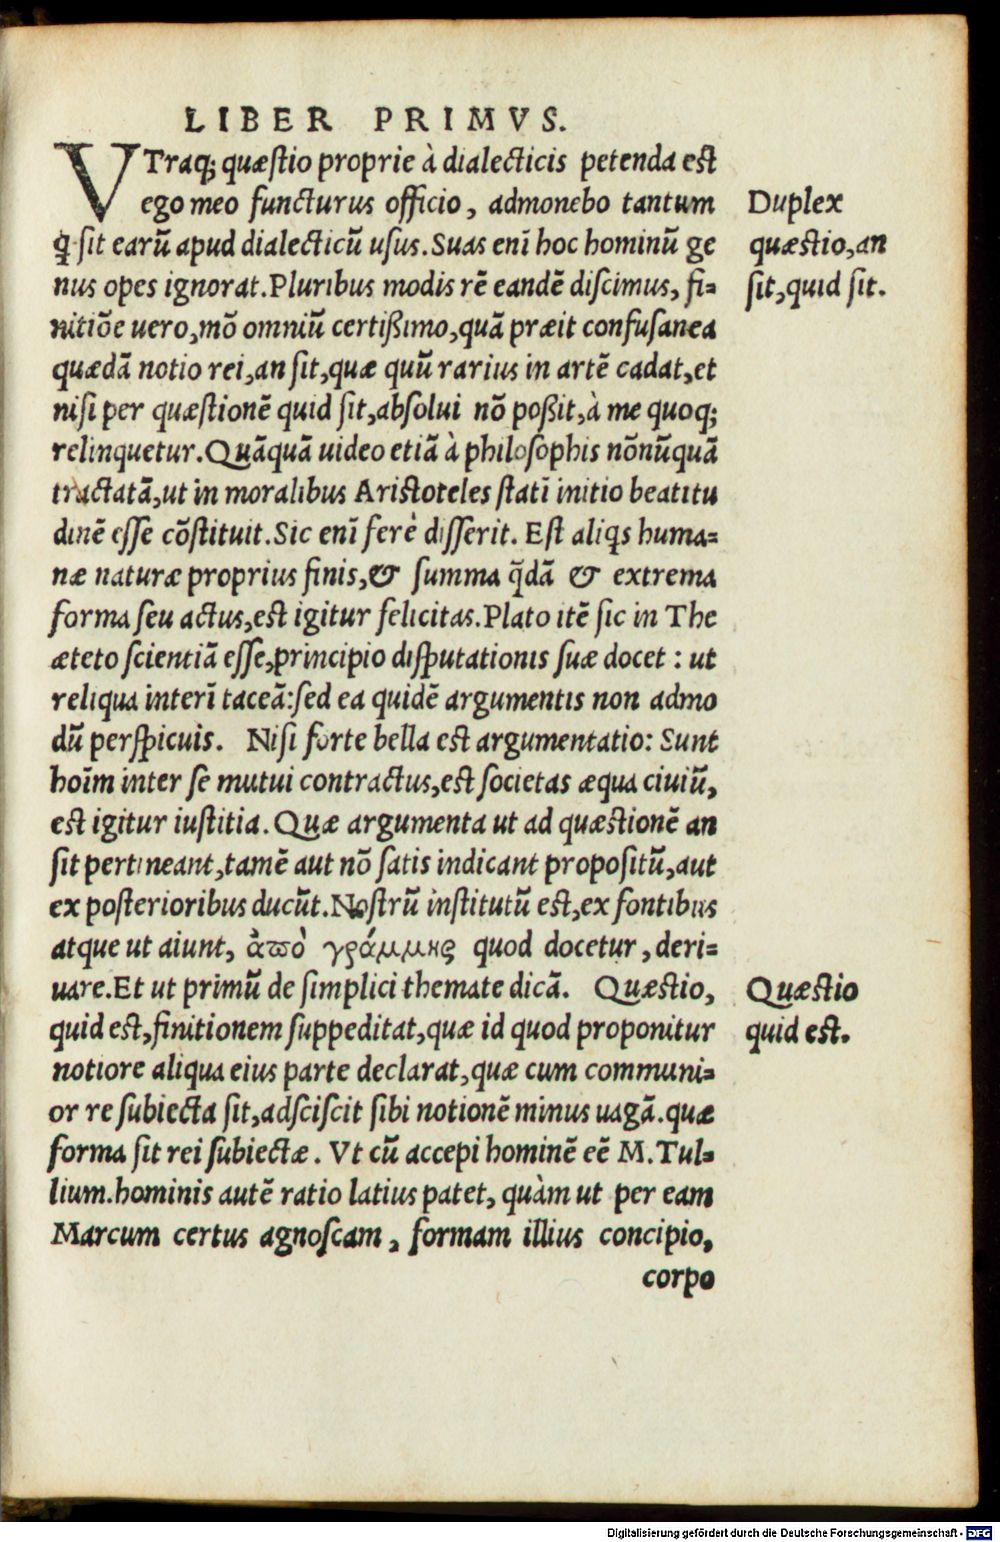 LIBER PRIMVS.
VTraq; quæstio proprie à dialecticis petenda est
ego meo functurus officio, admonebo tantum
Duplex
ꝗ sit earũ apud dialecticũ usus. Suas enĩ hoc hominũ ge
quæstio, an
nus opes ignorat. Pluribus modis rẽ eandẽ discimus, fi=
sit, quid sit.
nitiõe uero, mõ omniũ certißimo, quã præit confusanea
quædã notio rei, an sit, quæ quũ rarius in artẽ cadat, et
nisi per quæstionẽ quid sit, absolui nõ poßit, à me quoq;
relinquetur. Quãquã uideo etiã à philosophis nõnũquã
tractatã, ut in moralibus Aristoteles statĩ initio beatitu
dinẽ esse cõstituit. Sic enĩ ferè disserit. Est aliqs huma=
næ naturæ proprius finis, & summa q̃dã & extrema
forma seu actus, est igitur felicitas. Plato itẽ sic in The
æteto scientiã esse, principio disputationis suæ docet : ut
reliqua interĩ taceã: sed ea quidẽ argumentis non admo
dũ perspicuis. Nisi forte bella est argumentatio: Sunt
hoĩm inter se mutui contractus, est societas æqua ciuiũ,
est igitur iustitia. Quæ argumenta ut ad quæstionẽ an
sit pertineant, tamẽ aut nõ satis indicant propositũ, aut
ex posterioribus ducũt. Nostrũ institutũ est, ex fontibus
atque ut aiunt, ἀπὸ γράμμης quod docetur, deri=
uare. Et ut primũ de simplici themate dicã. Quæstio,
Quæstio
quid est, finitionem suppeditat, quæ id quod proponitur
quid est.
notiore aliqua eius parte declarat, quæ cum communi=
or re subiecta sit, adsciscit sibi notionẽ minus uagã. quæ
forma sit rei subiectæ. Vt cũ accepi hominẽ eẽ M. Tul=
lium. hominis autẽ ratio latius patet, quàm ut per eam
Marcum certus agnoscam, formam illius concipio,
corpo
Digitalisierung gefördert durch die Deutsche Forschungsgemeinschaft - DFG